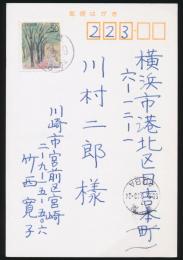 郵便はがき
223
横浜市港北区日吉本町
六-一二-一
川村二郎様
川崎市宮前区宮崎
二-九-一五-五〇六
竹西寛子